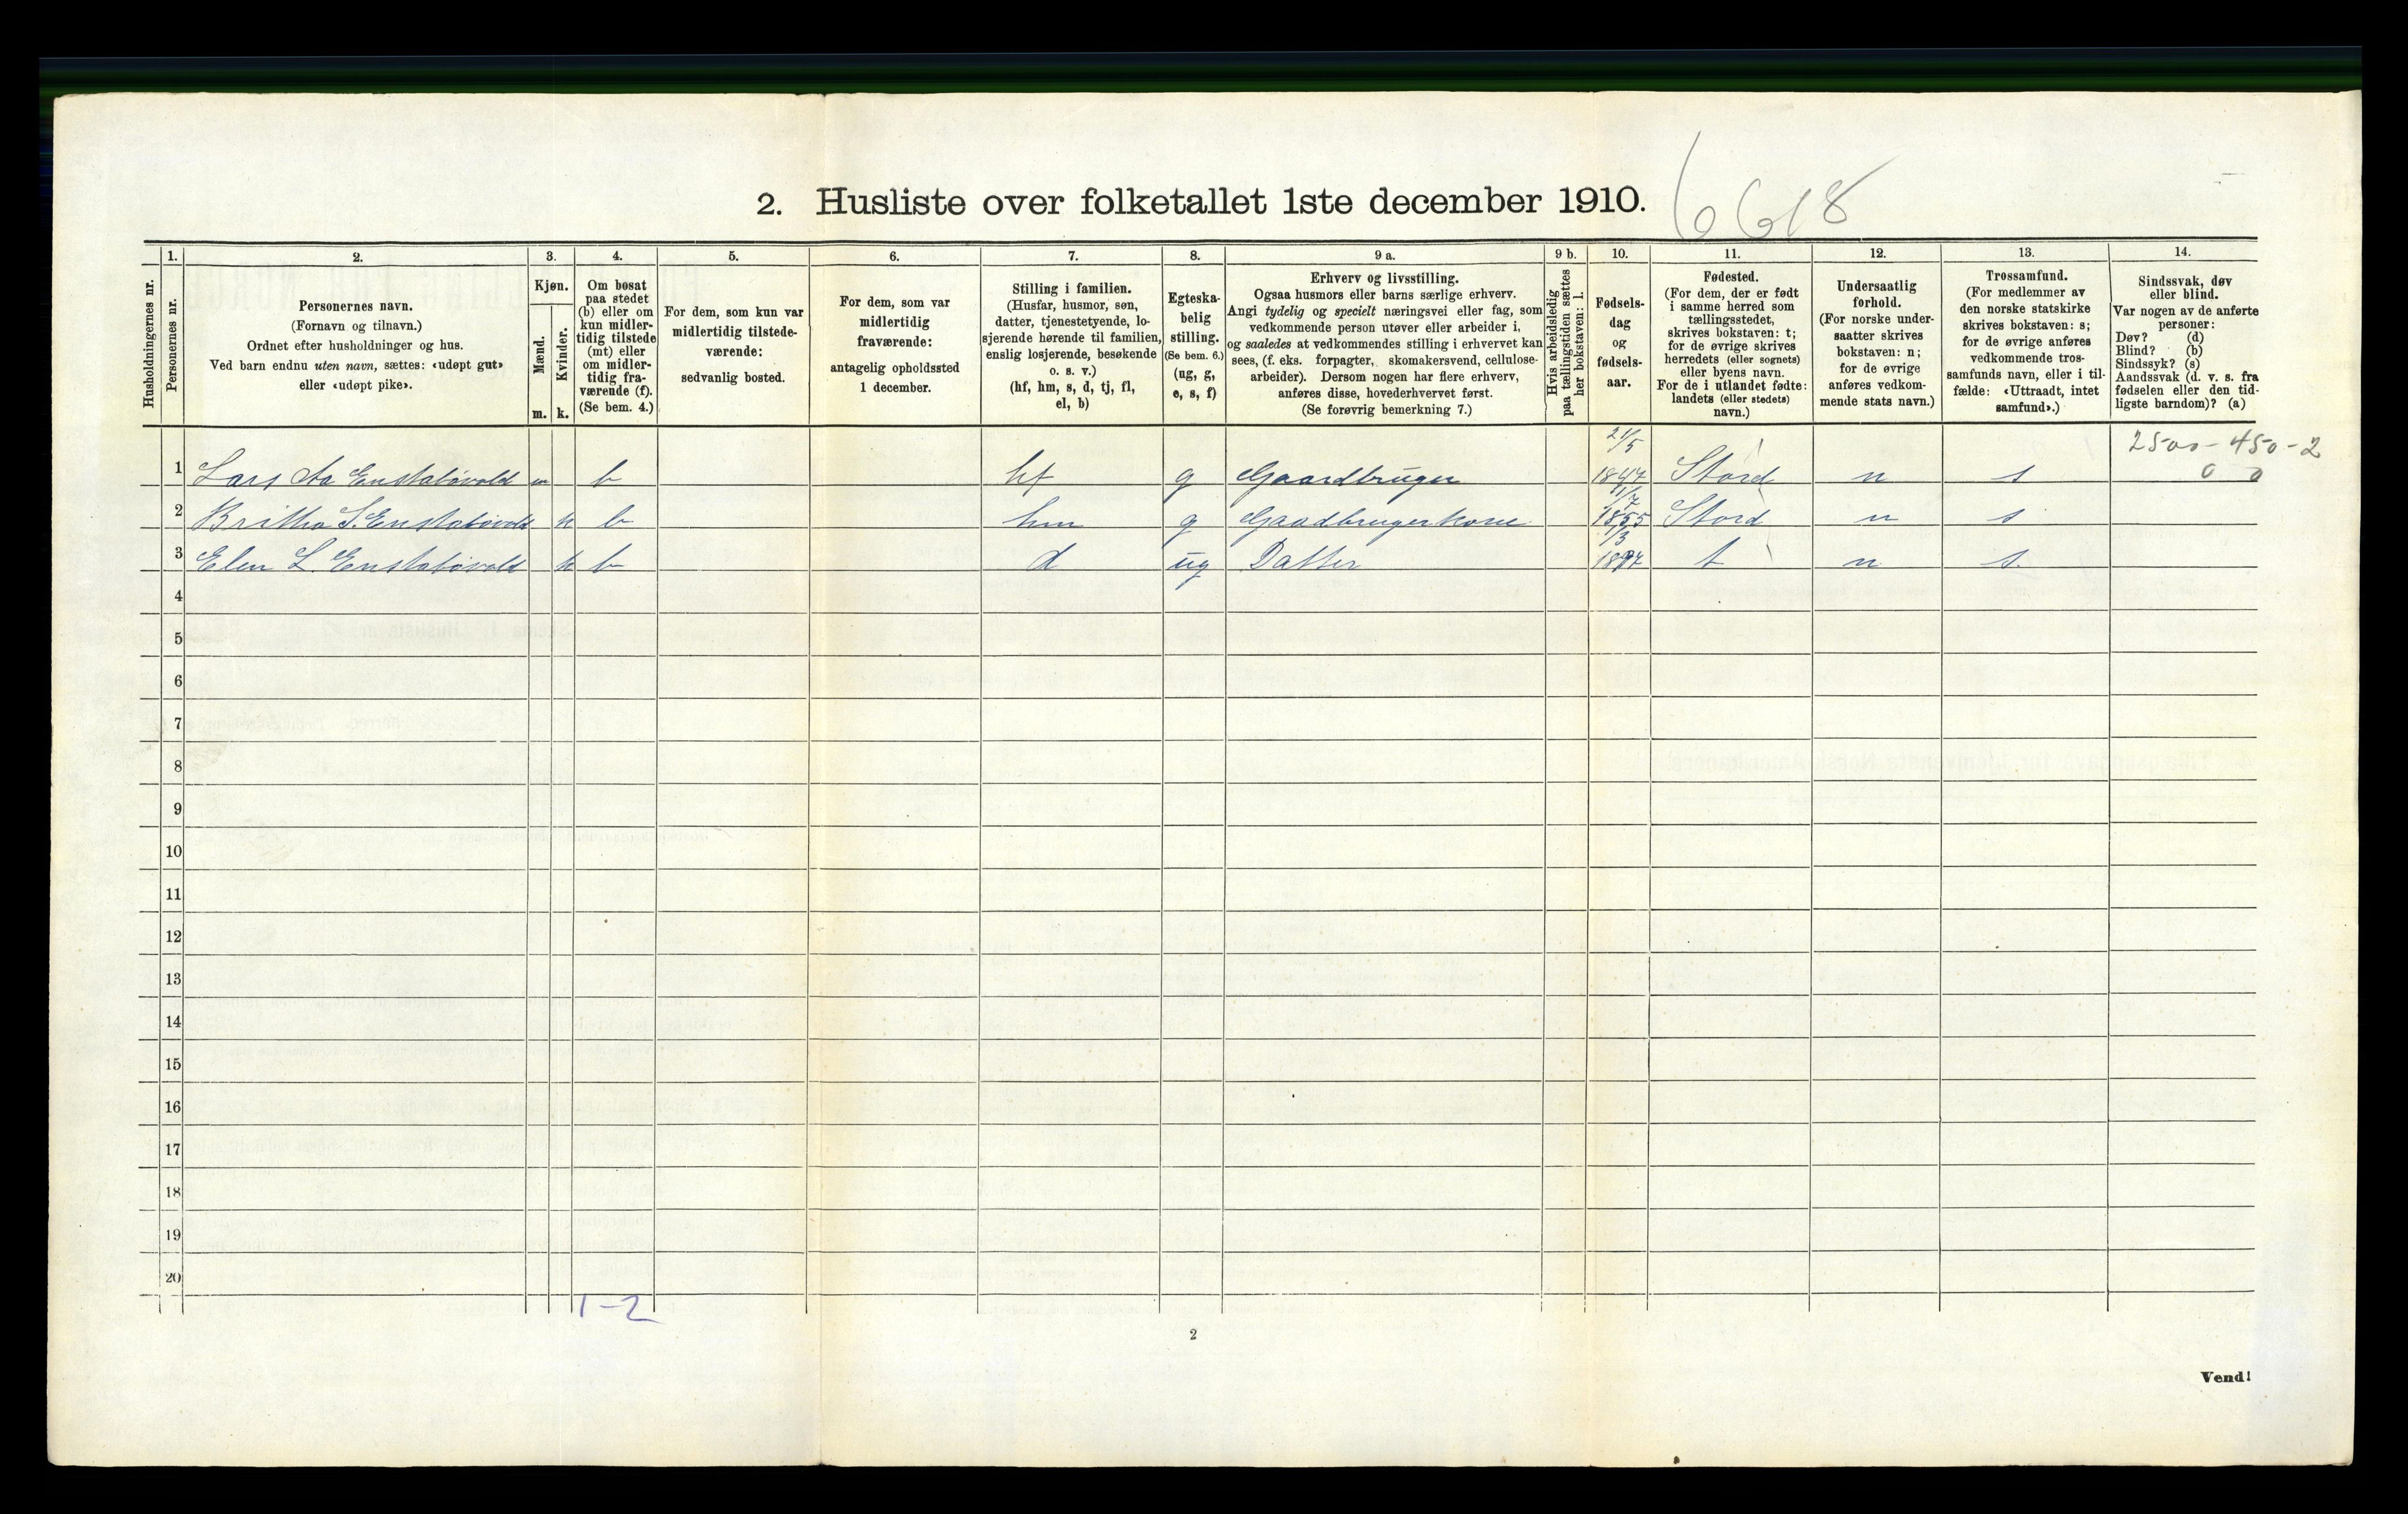 2. Husliste over folketallet 1ste december 1910. 6618
Husholdningernes nr.
1.
Personernes nr.
2.
Personernes navn.
(Fornavn og tilnavn.)
Ordnet efter husholdninger og hus.
Ved barn endnu uten navn, sættes: «udøpt gut»
eller «udøpt pike».
3.
Kjøn.
Mænd.
m.
Kvinder.
k.
4.
Om bosat
paa stedet
(b) eller om
kun midler-
tidig tilstede
(mt) eller
om midler-
tidig fra-
værende (f).
(Se bem. 4.)
5.
For dem, som kun var
midlertidig tilstede-
værende:
sedvanlig bosted.
6.
For dem, som var
midlertidig
fraværende:
antagelig opholdssted
1 december.
7.
Stilling i familien.
(Husfar, husmor, søn,
datter, tjenestetyende, lo-
sjerende hørende til familien,
enslig losjerende, besøkende
o. s. v.)
(hf, hm, s, d, tj, fl,
el, b)
8.
Egteska-
belig
stilling.
(Se bem. 6.)
(ug, g,
e, s, f)
9 a.
Erhverv og livsstilling.
Ogsaa husmors eller barns særlige erhverv.
Angi tydelig og specielt næringsvei eller fag, som
vedkommende person utøver eller arbeider i,
og saaledes at vedkommendes stilling i erhvervet kan
sees, (f. eks. forpagter, skomakersvend, cellulose-
arbeider). Dersom nogen har flere erhverv,
anføres disse, hovederhvervet først.
(Se forøvrig bemerkning 7.)
9 b.
Hvis arbeidsledig
paa tællingstiden sættes
her bokstaven: l.
10.
Fødsels-
dag
og
fødsels-
aar.
11.
Fødested.
(For dem, der er født
i samme herred som
tællingsstedet,
skrives bokstaven: t;
for de øvrige skrives
herredets (eller sognets)
eller byens navn.
For de i utlandet fødte:
landets (eller stedets)
navn.)
12.
Undersaatlig
forhold.
(For norske under-
saatter skrives
bokstaven: n;
for de øvrige
anføres vedkom-
mende stats navn.)
13.
Trossamfund.
(For medlemmer av
den norske statskirke
skrives bokstaven: s;
for de øvrige anføres
vedkommende tros-
samfunds navn, eller i til-
fælde: «Uttraadt, intet
samfund».)
14.
Sindssvak, døv
eller blind.
Var nogen av de anførte
personer:
Døv? (d)
Blind? (b)
Sindssyk? (s)
Aandssvak (d. v. s. fra
fødselen eller den tid-
ligste barndom)? (a)
2500 - 450 - 2
0 0
1 Lars Aa Enstabøvold m b hf g Gaardbruger 21/5 1847 Stord n s
2 Britha S. Enstabøvold k b hm g Gaadbrugerkone 11/7 1855 Stord n s
3 Elen L. Enstabøvold k b d ug Datter 1/3 t n s.
4
5
6
7
8
9
10
11
12
13
14
15
16
17
18
19
20
1-2
2
Vend!